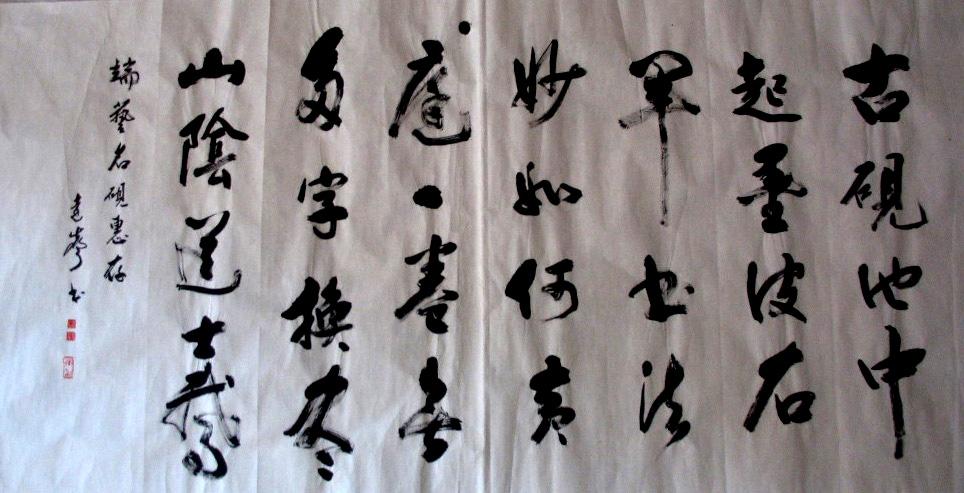 古硯池中
起墨波右
軍書法
妙如何黄
庭一卷無
多字換尽
山陰道士鵝
端藝名硯惠存
書